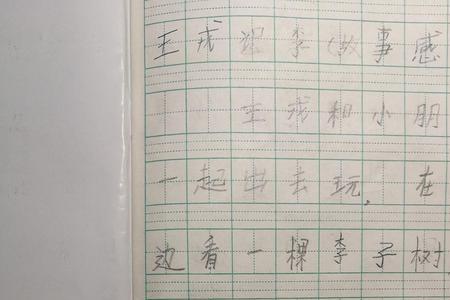 王戎李故事感
王戎和小朋
一起出去玩，在
边看一棵李子树